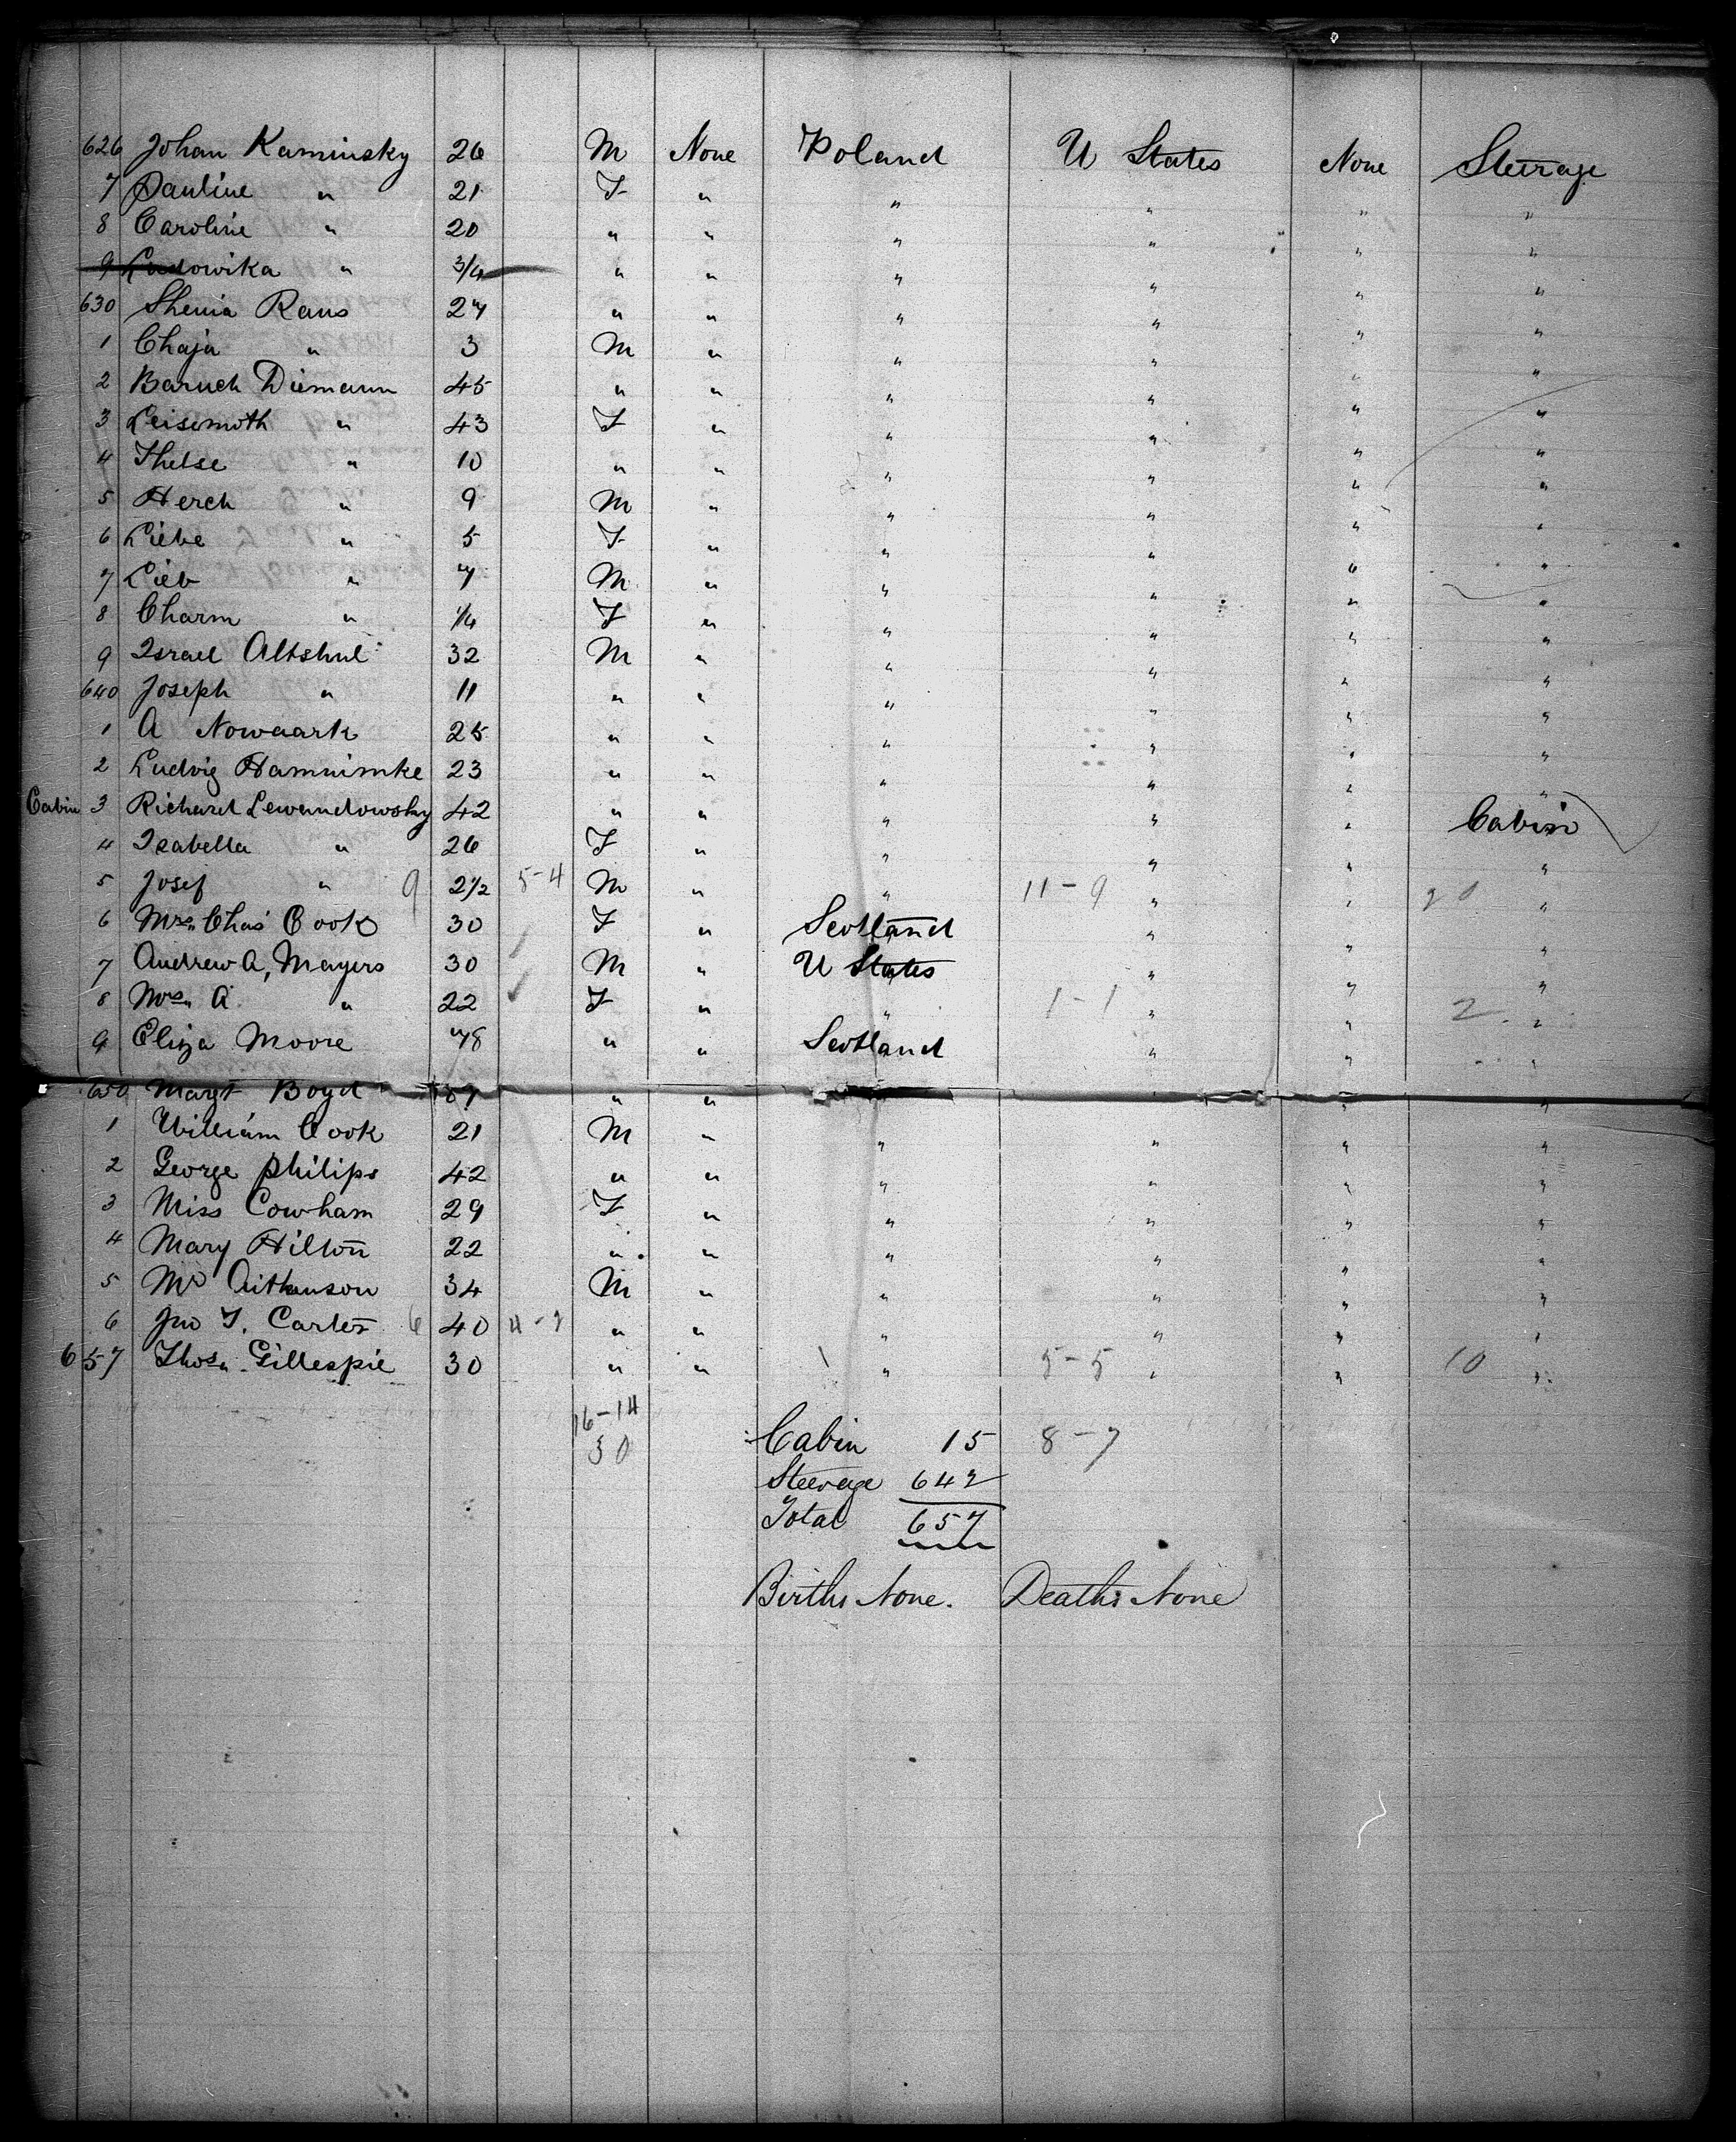 626 Johan Kaminsky 26 M None Poland U States None Steerage
7 Pauline " 21 F " " " " "
8 Caroline " 20 " " " " " "
9 Ludowika " 3/4 " " " " " "
630 Shenia Raus 27 " " " " " "
1 Chaja " 3 M " " " " "
2 Baruch Diemann 45 " " " " " "
3 Leisemoth " 43 F " " " " "
4 Thelse " 10 " " " " " "
5 Herch " 9 M " " " " "
6 Liebe " 5 F " " " " "
7 Lieb " 7 M " " " " "
8 Charm " F " " " " "
9 Israel Altshul 32 M " " " " "
640 Joseph " 11 " " " " " "
1 A Nowaark 25 " " " " " "
2 Ludvig Hamnimke 23 " " " " " "
Cabin 3 Richard Lewandowsky 42 " " " " " Cabin
4 Isabella " 26 F " " " " "
5 Josef " 9 2 1/2 5-4 M " " 11-9 " " 20 "
6 Mrs. Chas Cook 30 F " Scotland " " "
7 Andrew A, Mayers 30 M " U States " " "
8 Mrs. A " 22 F " " 1-1 " " 2 "
9 Eliza Moore 48 " " Scotland " " "
650 Margt Boyd " " " " "
1 William Cook 21 M " " " " "
2 George Philips 42 " " " " " "
3 Miss Cowham 29 F " " " " "
4 Mary Hilton 22 " " " " " "
5 Mr Aitkenson 34 M " " " " "
6 Jno T. Carter 6 40 4-2 " " " " " "
657 Thos. Gillespie 30 " " " 5-5 " " 10 "
16-14
30
Cabin 15 8-7
Steerage 642
Total 657
Births None. Deaths None